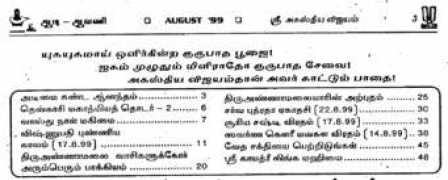 ஆடி - ஆவணி AUGUST '99 ஸ்ரீ அகஸ்திய விஜயம் 3
யுகயுகமாய் ஒளிர்கின்ற குருபாத பூஜை!
ஜகம் முழுதும் மிளிராதோ குருபாத சேவை!
அகஸ்திய விஜயம்தான் அவர் காட்டும் பாதை!
அடிமை கண்ட ஆனந்தம் 3
தொடர் - 2 6
வாஸ்து நாள் மகிமை 7
விஷ்ணுபதி புண்ணிய
காலம் (17.8.99) 11
திருஅண்ணாமலை வாசிகளுக்கோர்
அரும்பெரும் பாக்கியம் 20
திருஅண்ணாமலையாரின் அற்புதம் 25
சர்வ புத்ரதா ஏகாதசி (22.8.99) 30
சூரிய சஷ்டி விரதம் (17.8.99) 33
ஸ்வர்ண கௌரீ விரதம் (14.8.99) 38
வேத சக்தியை பெற்றிடுங்கள் 45
ஸ்ரீ காயத்ரீ மஹிமை 48